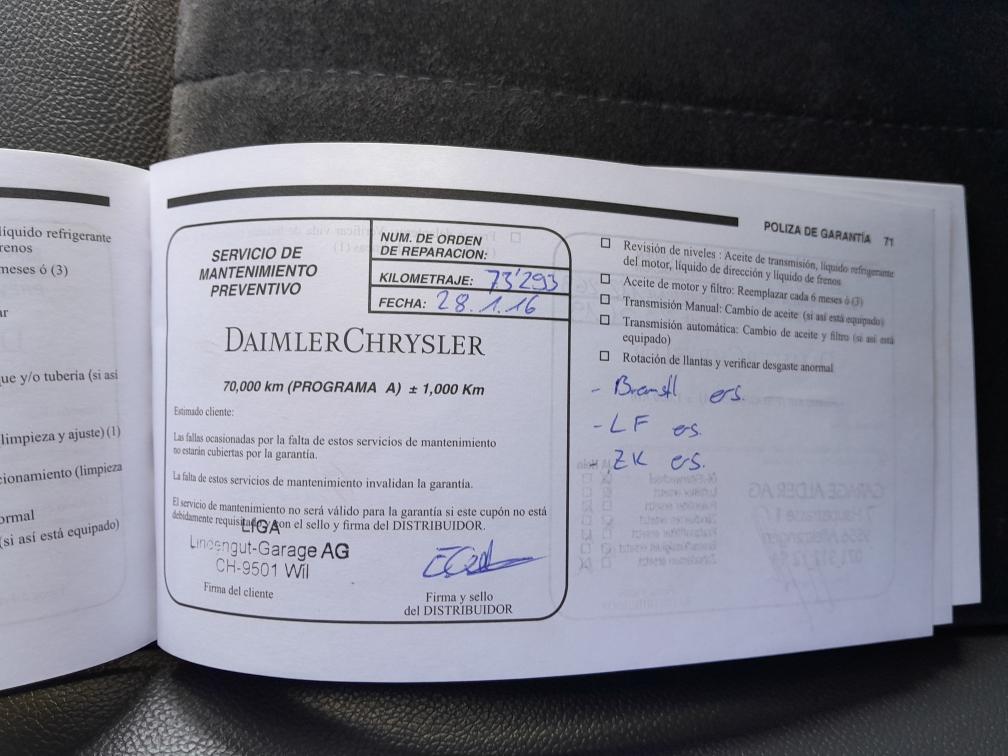 líquido refrigerante
renos
meses ó (3)
ar
ue y/o tuberia (si asi
limpieza y ajuste) (1)
cionamiento (limpieza
ormal
(si así está equipado)
POLIZA DE GARANTÍA 71
SERVICIO DE
MANTENIMIENTO
PREVENTIVO
NUM. DE ORDEN
DE REPARACION:
KILOMETRAJE: 73'293
FECHA: 28.1.16
DAIMLERCHRYSLER
70,000 km (PROGRAMA A) ± 1,000 Km
Estimado cliente:
Las fallas ocasionadas por la falta de estos servicios de mantenimiento
no estarán cubiertas por la garantía.
La falta de estos servicios de mantenimiento invalidan la garantía.
El servicio de mantenimiento no será válido para la garantía si este cupón no está
debidamente con el sello y firma del DISTRIBUIDOR.
LIGA
Lindengut-Garage AG
CH-9501 Wil
Firma del cliente
Firma y sello
del DISTRIBUIDOR
Revisión de niveles : Aceite de transmisión, líquido refrigerante
del motor, líquido de dirección y líquido de frenos
Aceite de motor y filtro: Reemplazar cada 6 meses ó (3)
Transmisión Manual: Cambio de aceite (si así está equipado)
Transmisión automática: Cambio de aceite y filtro (si así está
equipado)
Rotación de llantas y verificar desgaste anormal
- Bremsfl ers.
- LF ers.
- ZK ers.